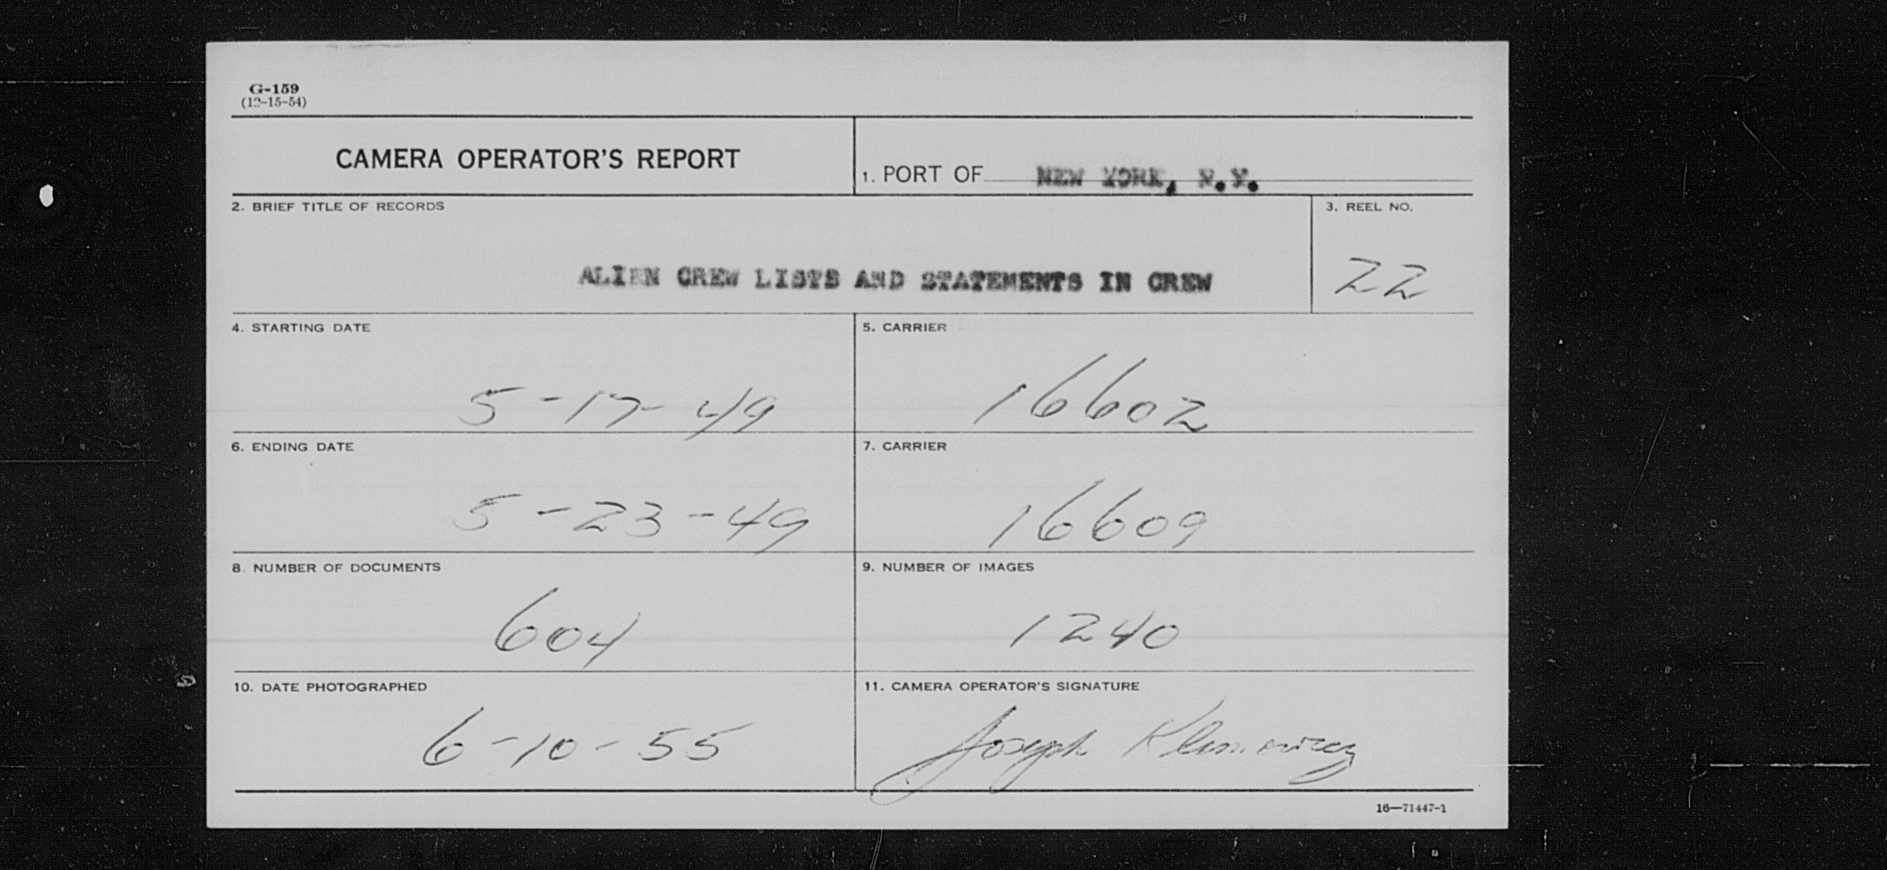 G-159
(12-15-54)
CAMERA OPERATOR'S REPORT
1. PORT OF NEW YORK, N.Y.
2. BRIEF TITLE OF RECORDS
3. REEL NO.
ALIEN CREW LISTS AND STATEMENTS IN CREW
22
4. STARTING DATE
5. CARRIER
5-17-49
16602
6. ENDING DATE
7. CARRIER
5-23-49
16609
8. NUMBER OF DOCUMENTS
9. NUMBER OF IMAGES
604
1240
10. DATE PHOTOGRAPHED
11. CAMERA OPERATOR'S SIGNATURE
6-10-55
Joseph
16—71447-1